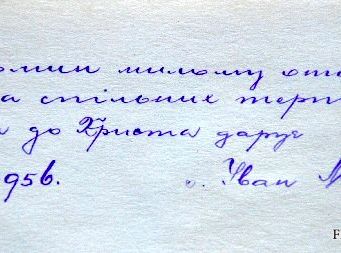 омин милому от
а спільних терп
до Христа дарує
956. о. Іван М
F